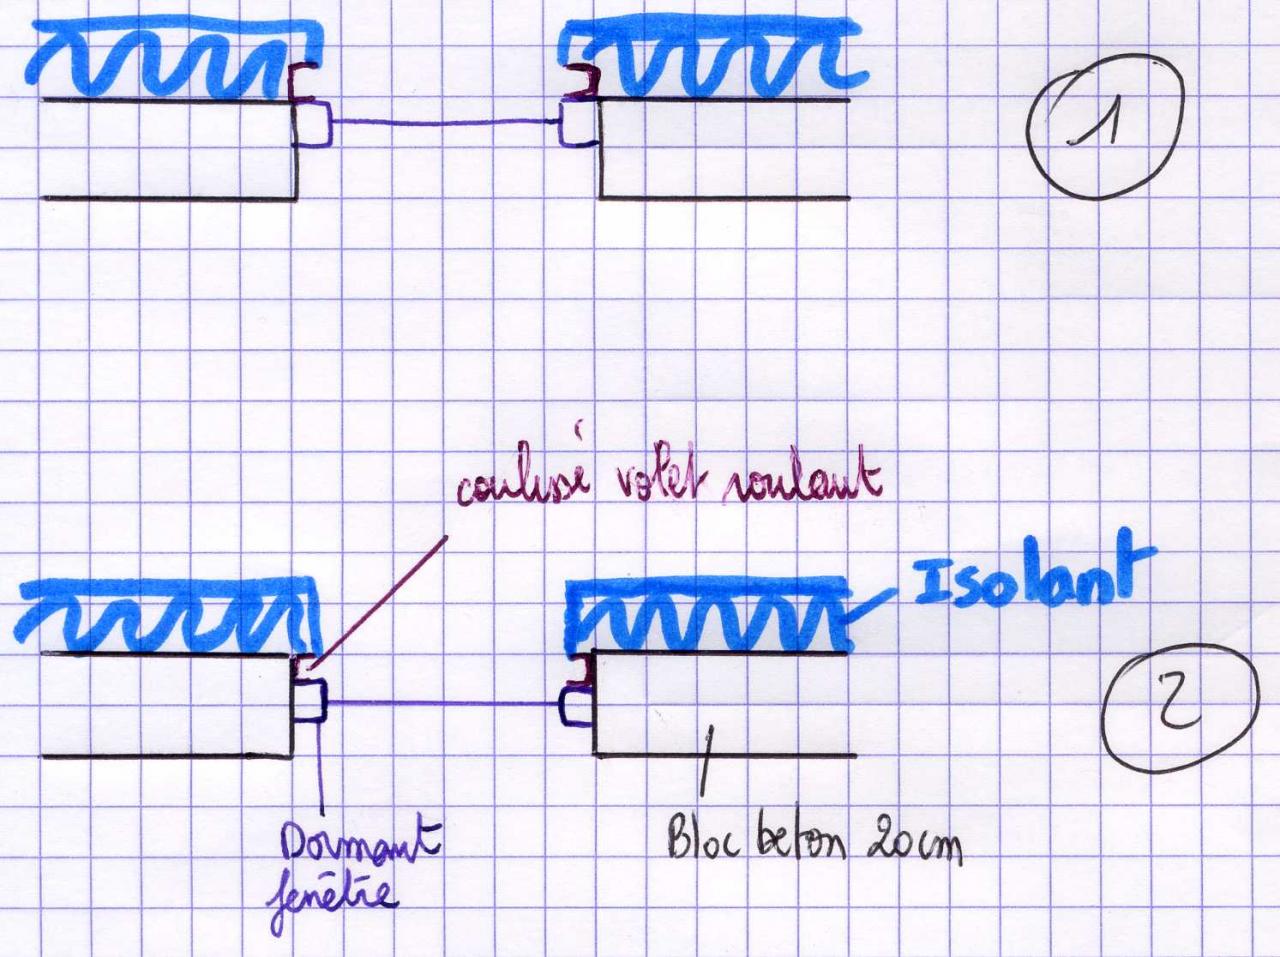 1
coulisse volet roulant
Isolant
2
Dormant
fenêtre
Bloc beton 20cm